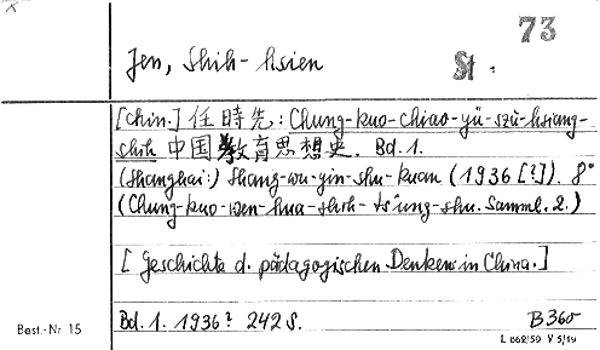 73
Jen, Shih-hsien
St.
[Chin.] 任時先: Chung-kuo-chiao-yü-szŭ-hsiang-
shih 中国教育思想史. Bd. 1.
(Shanghai:) Shang-wu-yin-shu-kuan (1936 [?]). 8°
(Chung-kuo-wen-hua-shih-ts'ung-shu. Samml. 2.)
[Geschichte d. pädagogischen Denkens in China.]
Bd. 1. 1936? 242 S. B360
Best.-Nr 15